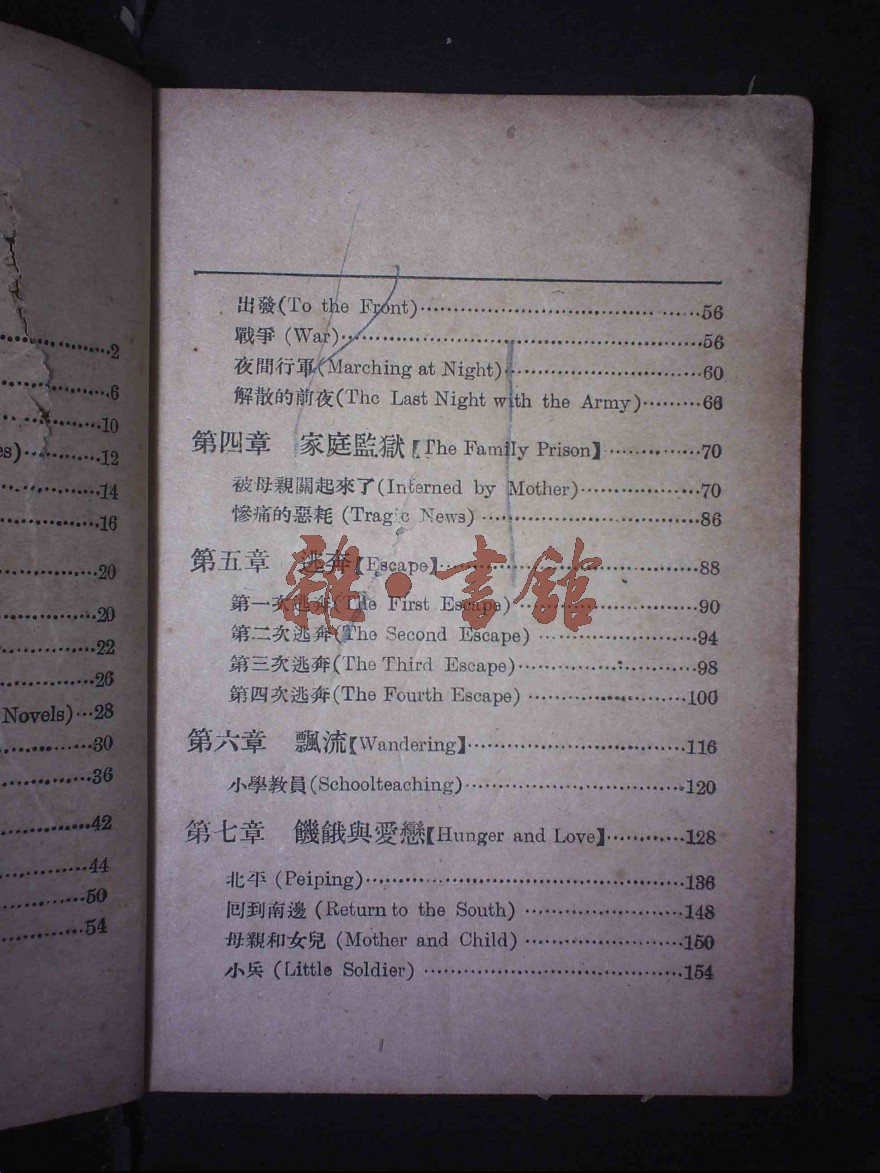 2
6
10
es)
12
14
16
20
20
22
26
Novels)···28
30
36
42
44
50
54
出發(To the Front)······56
戰爭 (War)······56
夜間行軍(Marching at Night)······60
解散的前夜(The Last Night with the Army)······66
第四章 家庭監獄【The Family Prison】······70
被母親關起來了(Interned by Mother)······70
慘痛的惡耗 (Tragic News)······86
第五章 逃奔【Escape】······88
第一次逃奔(The First Escape)······90
第二次逃奔(The Second Escape)······94
第三次逃奔(The Third Escape)······98
第四次逃奔(The Fourth Escape)······100
第六章 飄流【Wandering】······116
小學教員(Schoolteaching)······120
第七章 饑餓與愛戀【Hunger and Love】······128
北平 (Peiping)······136
回到南邊 (Return to the South)······148
母親和女兒 (Mother and Child)······150
小兵 (Little Soldier)······154
雜·書館